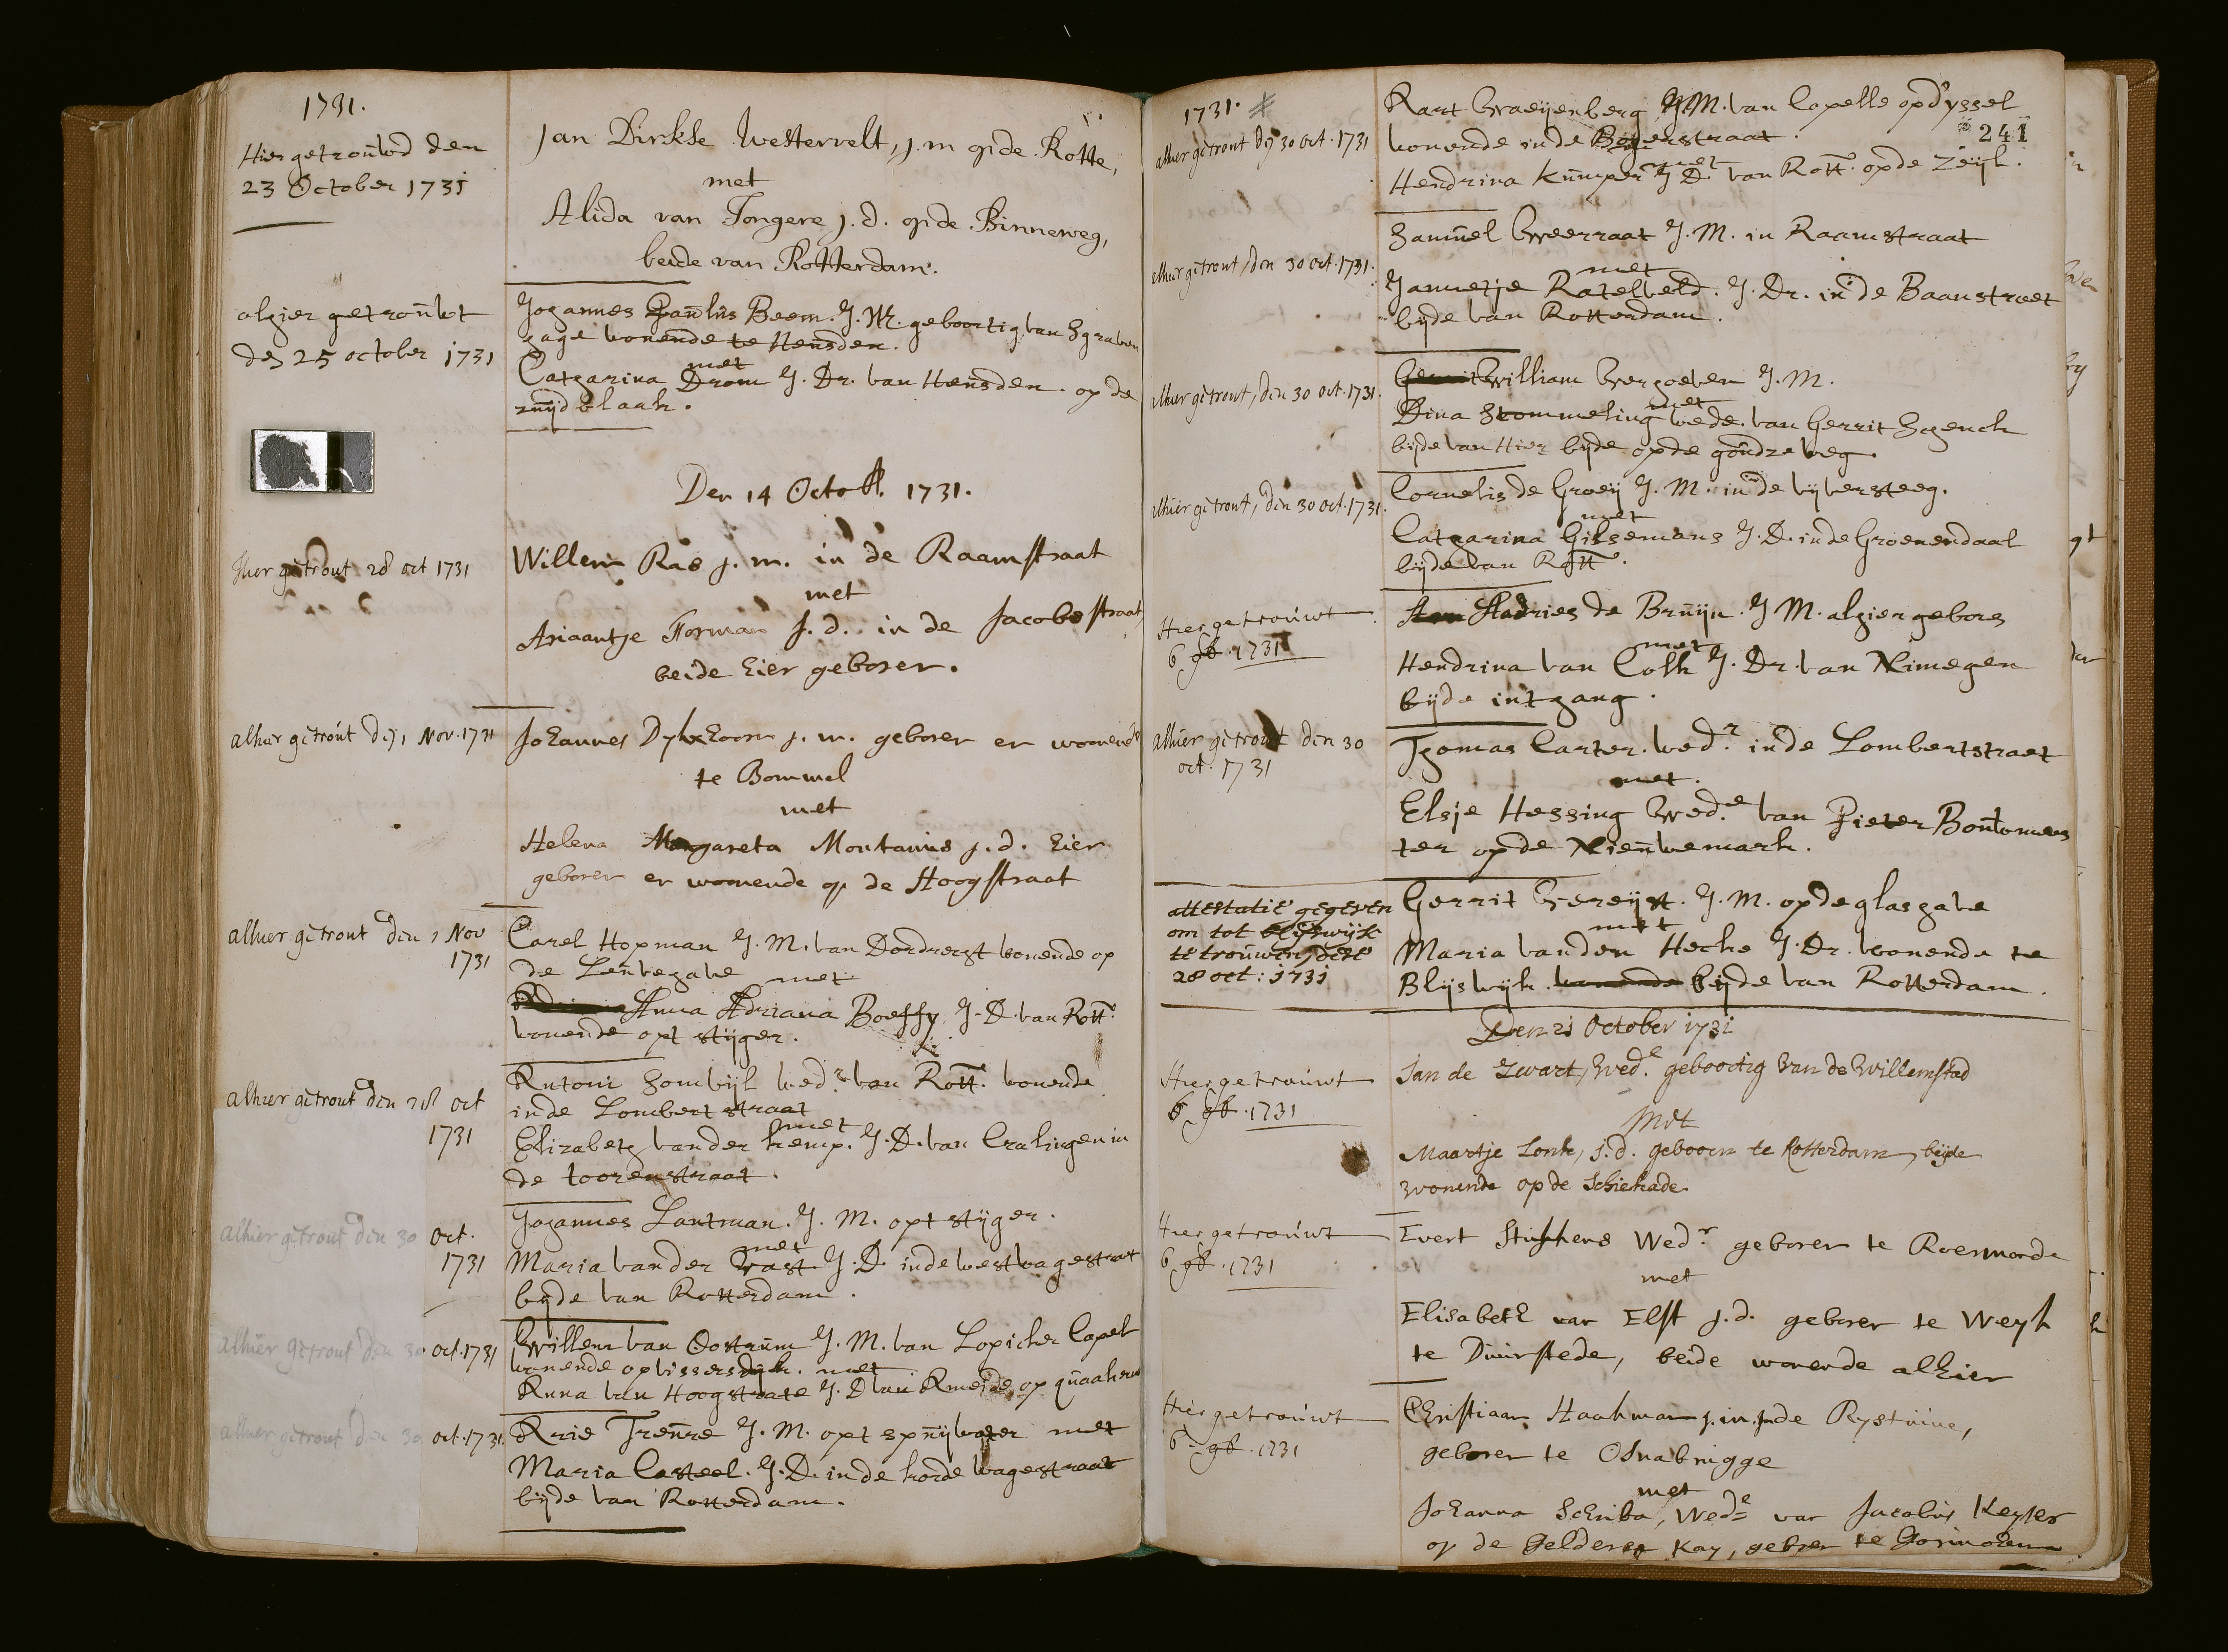 1731.
Hier getrouwd den
23 October 1731
Jan Dirkse Westervelt, j.m op de Rotte,
met
Alida van Tongere j.d. op de Binneweg,
beide van Rotterdam.
alhier getrouwt
den 25 october 1731
Johannes Paulus Beem. J.M. geboortig van Sgraven
hage wonende te Heusden.
met
Catharina Drom J. Dr. van Heusden op de
zuijdblaak.
Den 14 Octob. 1731.
hier getrout 28 oct 1731
Willem Ras j.m. in de Raamstraat
met
Ariaantje Forman j.d. in de Jacobsstraat,
beide hier geboren.
alhier getrout den 1 Nov. 1731
Johannes Dykhoorn j.m. geboren en woonende
te Bommel
met
Helena Margareta Montanus j.d. hier
geboren en woonende op de Hoogstraat
alhier getrout den 1 Nov
1731
Carel Hopman J.M. van Dordrecht wonende op
de Leuvehave
met
Anna Adriana Boeffy J.D. van Rott.
wonende opt stijger.
alhier getrout den 28 oct
1731
Antoni Somwijl wedr. van Rott. wonende
in de Lombertstraat
met
Elizabeth vander kemp. J.D. van Cralingen in
de toorenstraat.
alhier getrout den 30 oct.
1731
Johannes Lantman. J.M. opt stijger.
met
Maria vander Vast J.D. inde westwagestraat
bijde van Rotterdam.
alhier getrout den 30 oct. 1731
Willem van Oostrum J.M. van Lopicker Capel
wonende op vissersdijck. met
Anna van Hoogstrate J.D van Ameide op quaakern
alhier getrout den 30 oct. 1731.
Arie Treure J.M. opt spuijwater met
Maria Casteel. J.D. in de korde wagestraat
bijde van Rotterdam.
1731.
241
alhier getrout den 30 oct. 1731
Aart Graeijenberg J.M. van Capelle op d'yssel
wonende in de Bogerstraat.
met
Hendrina Kumper J.D. van Rott. op de Zeijl.
alhier getrout, den 30 oct. 1731.
Samuel Weerraat J.M. in Raamstraat
met
Jannetje Ratelveld. J. Dr. in de Baanstraet
bijde van Rotterdam.
alhier getrout, den 30 oct. 1731.
Gerrit William Verhoeven J.M.
met
Dina Stommeling wede. van Gerrit Schenck
bijde van Hier bijde op de goudze weg.
alhier getrout, den 30 oct. 1731.
Cornelis de Groeij J.M. in de vijversteeg.
met
Catharina Gilsemans J.D. in de Groenendaal
bijde van Rott.
Hier getrouwt
6 9b. 1731
Andries de Bruijn. J M. alhier gebore
met
Hendrina van Colk J. Dr. van Nimegen
bijde int gang.
alhier getrout den 30
oct. 1731
Thomas Carter. wedr. in de Lombertstraet
met
Elsje Hessing Wede. van Pieter Bontemees
ter op de Nieuwemark.
attestatie gegeven
om tot Blijswijk
te trouwen, dese
28 oct: 1731
Gerrit Vereijst. J.M. op de glashave
met
Maria vanden Hecke J. Dr. wonende te
Blijswijk. wonende bijde van Rotterdam.
Den 21 October 1731
Hier getrouwt
6 9b. 1731
Jan de Zwart, Wedr. geboortig van de Willemstad
Met
Maartje Lonk, j.d. gebooren te Rotterdam, beijde
wonende op de Schiekade
Hier getrouwt
6 9b. 1731
Evert Stiphens Wedr. geboren te Roermonde
met
Elisabeth van Elst j.d. geboren te Weyk
te Duurstede, beide wonende alhier
Hier getrouwt
6 9b. 1731
Christiaan Haakman j.m. in de Rystuine,
geboren te Osnabrugge
met
Johanna Scriba, Wede van Jacobus Keyser
op de Gelderse Kay, geboren te Gorinchem